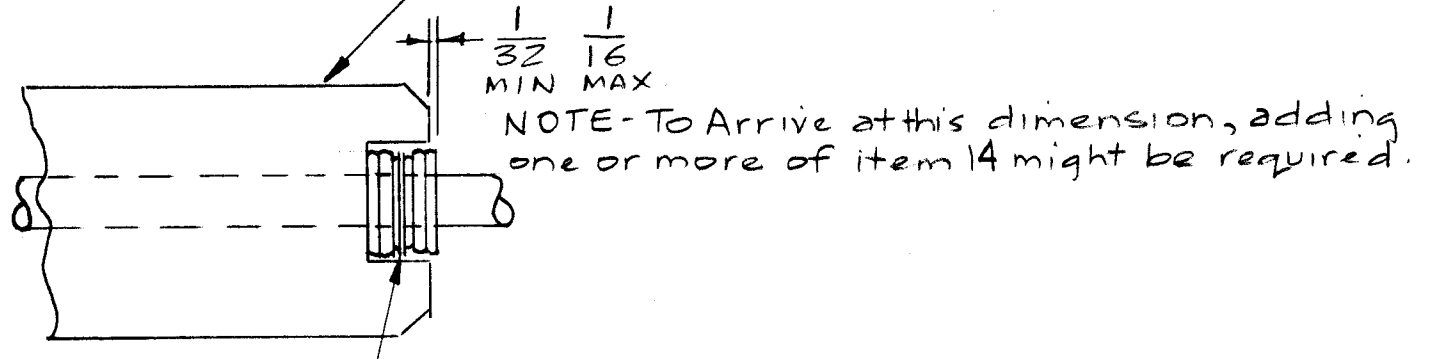 1/32 1/16
MIN MAX
NOTE - To Arrive at this dimension, adding
one or more of item 14 might be required.